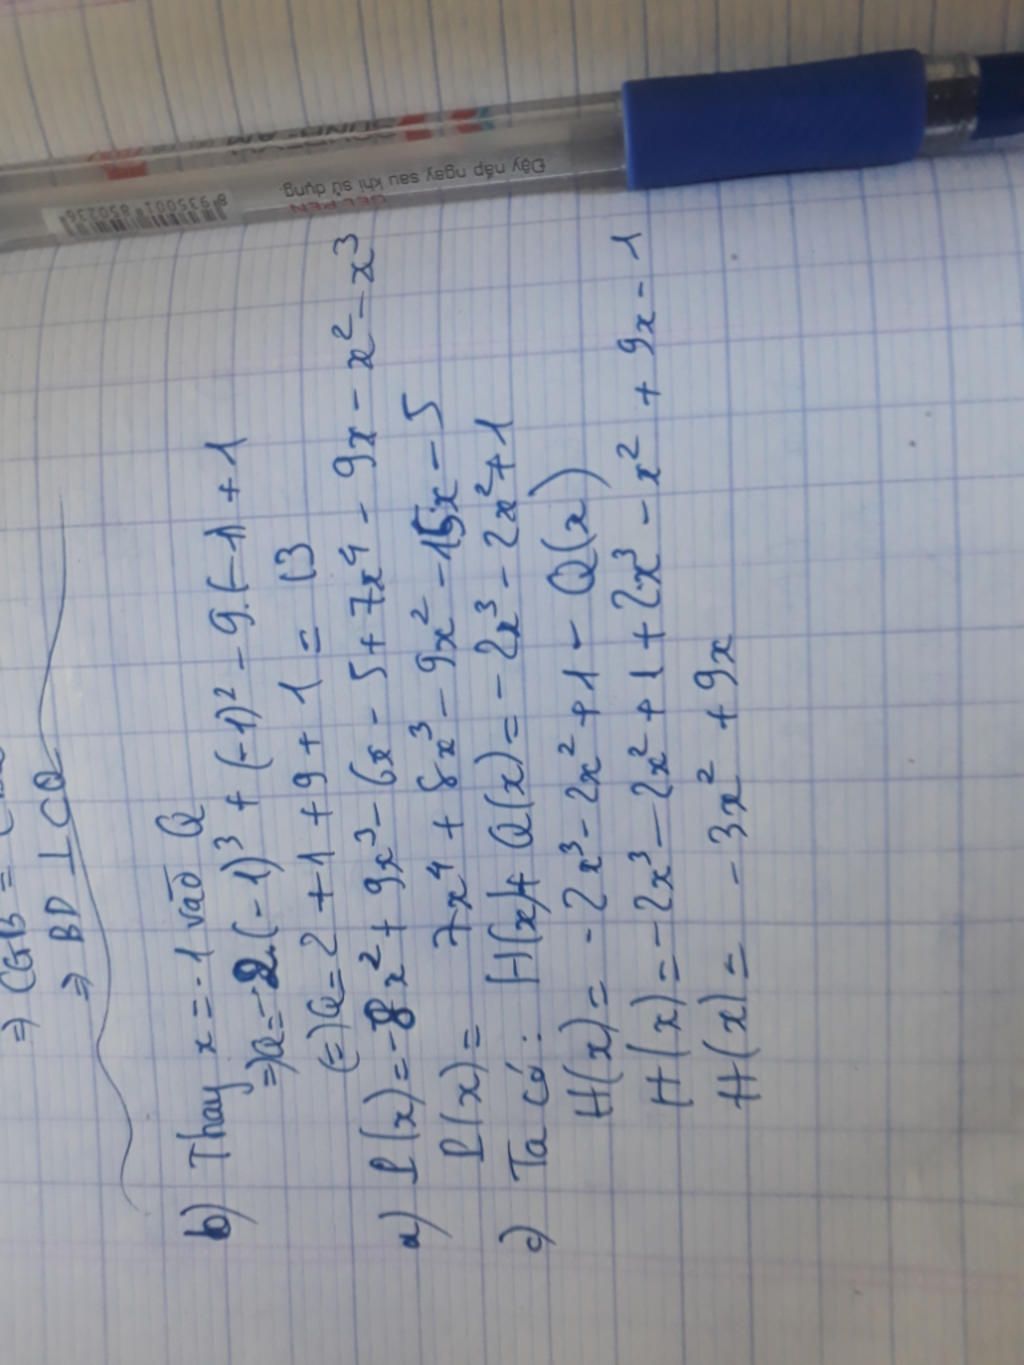 ⇒ BD ⊥ CQ
b) Thay x = -1 vào Q
⇒ Q = -2.(-1)³ + (-1)² - 9.(-1) + 1
(=) Q = 2 + 1 + 9 + 1 = 13
a) P(x) = -8x² + 9x³ - 6x - 5 + 7x⁴ - 9x - x² - x³
P(x) = 7x⁴ + 8x³ - 9x² - 15x - 5
c) Ta có: H(x) + Q(x) = -2x³ - 2x² + 1
H(x) = -2x³ - 2x² + 1 - Q(x)
H(x) = -2x³ - 2x² + 1 + 2x³ - x² + 9x - 1
H(x) = -3x² + 9x
GEL-PEN
Đậy nắp ngay sau khi sử dụng.
8 935001 850236